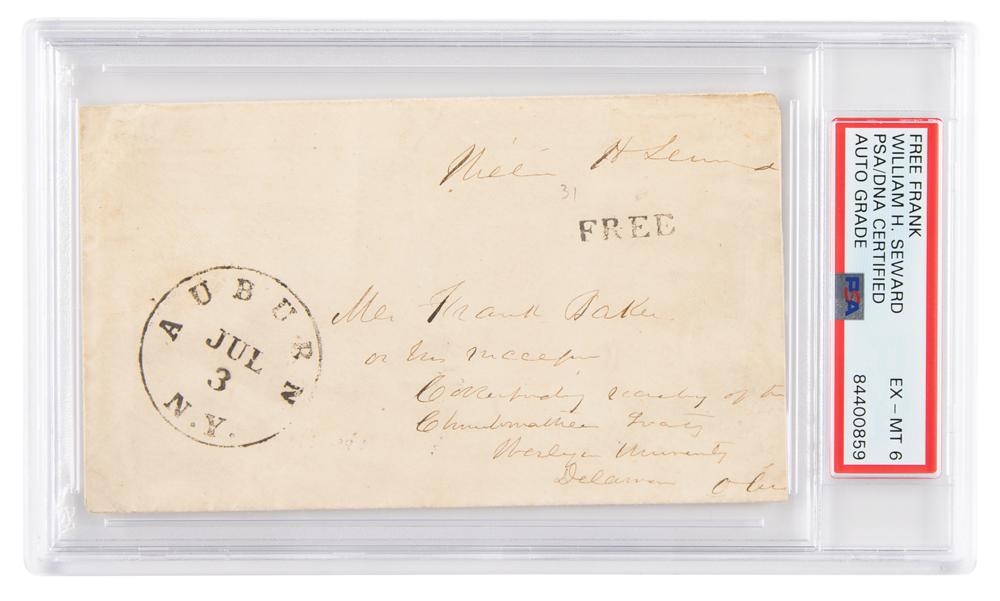 William H Seward
31
FREE
AUBURN
JUL
3
N.Y.
Frank Baker
or his successor
Corresponding secretary of the
Society
Wesleyan University
Delaware Ohio
FREE FRANK
WILLIAM H. SEWARD
PSA/DNA CERTIFIED
AUTO GRADE
EX - MT 6
84400859
PSA